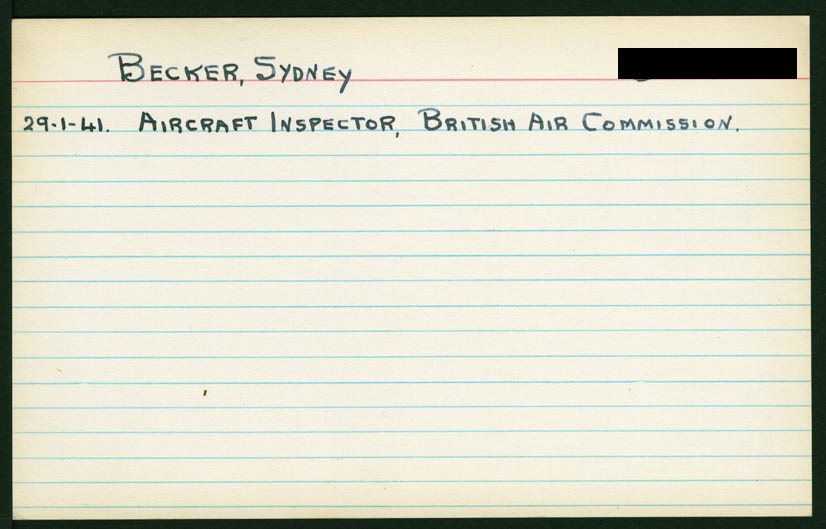 BECKER, SYDNEY
29-1-41. AIRCRAFT INSPECTOR, BRITISH AIR COMMISSION.